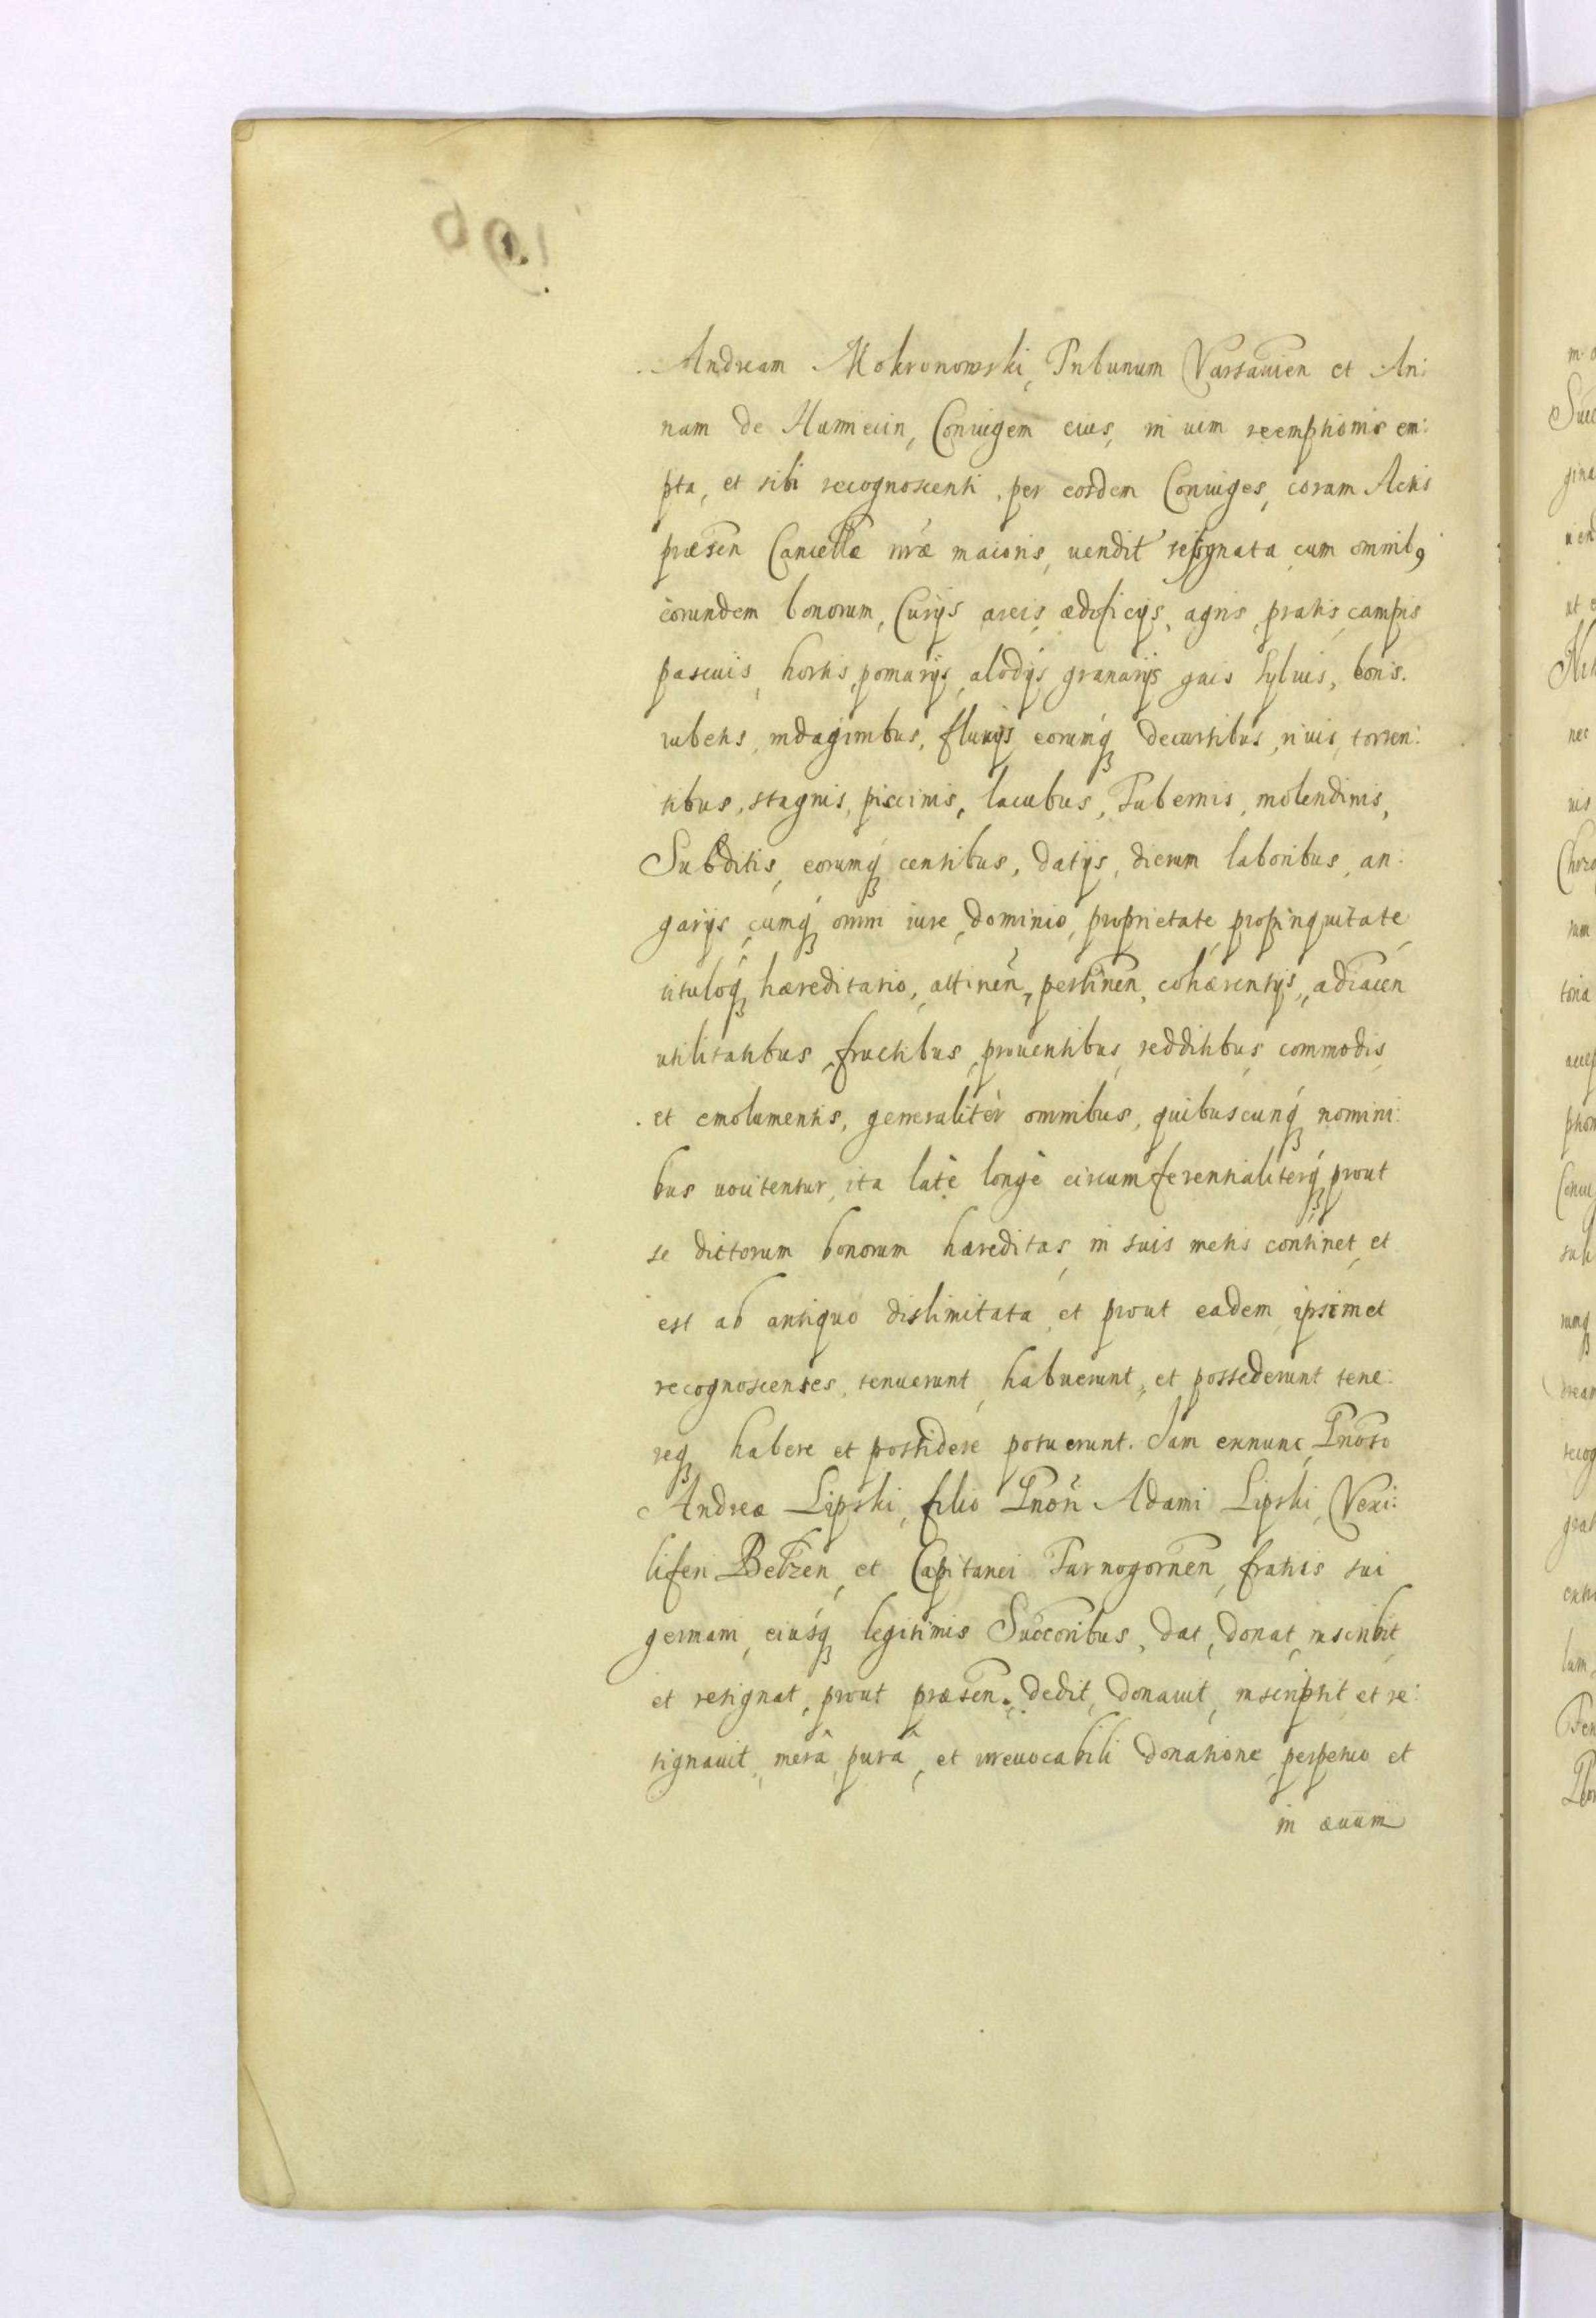 Andream Mokronowski, Tribunum Varsauien et An:
nam de Humiecin, Coniugem eius, in uim reemptionis em:
pta, et sibi recognoscenti, per eosdem Coniuges, coram Actis
præsen Cancellæ nræ maioris, uendit resignata cum omnibꝰ
eorundem bonorum, Curijs areis ædificijs, agris, pratis, campis
pascuis, hortis, pomarijs, alodijs granarijs gais syluis, boris.
rubetis, indaginibus, fluuijs eorumqꝫ decursibus, riuis, torren:
tibus, stagnis, piscinis, lacubus, Tabernis, molendinis,
Subditis, eorumqꝫ censibus, datijs, dierum laboribus, an:
garijs cumqꝫ omni iure, dominio, proprietate propinquitate
tituloqꝫ hæreditario, attinen, pertinen, cohærentijs, adiacen
utilitatibus, fructibus, prouentibus, redditibus, commodis,
et emolumentis, generalitèr omnibus, quibuscunqꝫ nomini:
bus uocitentur, ita latè longè circumferentialiterqꝫ prout
se dictorum bonorum hæreditas, in suis metis continet, et
est ab antiquo dislimitata, et prout eadem ipsimet
recognoscentes, tenuerunt, habuerunt, et possederunt tene:
reqꝫ habere et possidere potuerunt. Iam exnunc, Gnoso
Andreæ Lipski, filio Gnosi Adami Lipski, Vexi:
liferi Belzen, et Capitanei Tarnogornen, fratris sui
germani, eiusqꝫ legitimis Succoribus, dat, donat, inscribit,
et resignat, prout præsen. dedit, donauit, inscripsit, et re:
signauit, merâ, purâ, et irreuocabili donatione, perpetuo et
in æuum